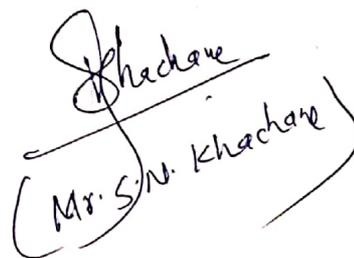 SKhachane
(Mr. S. N. Khachane)